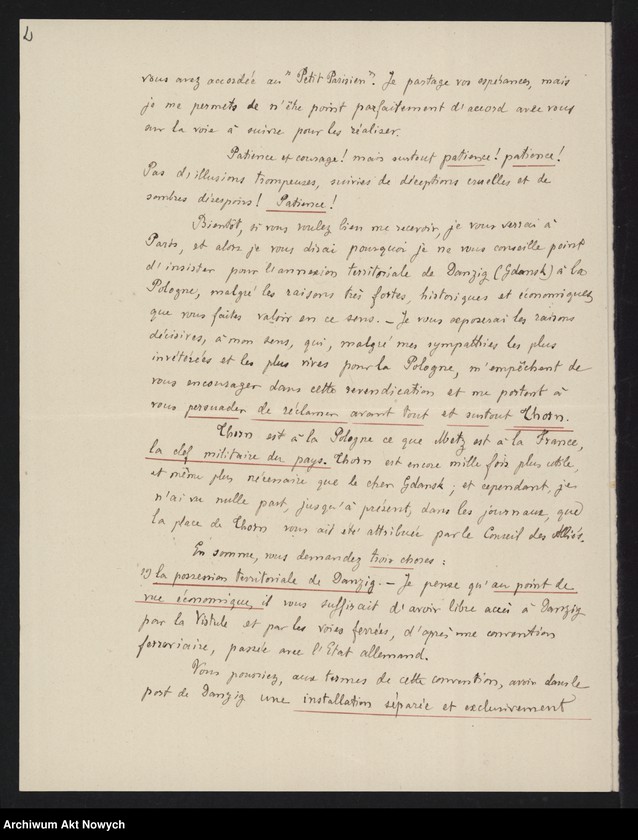 2
vous avez accordée au "Petit Parisien". Je partage vos espérances, mais
je me permets de n'être point parfaitement d'accord avec vous
sur la voie à suivre pour les réaliser.
Patience et courage! mais surtout patience! patience!
Pas d'illusions trompeuses, suivies de déceptions cruelles et de
sombres désespoirs! Patience!
Bientôt, si vous voulez bien me recevoir, je vous verrai à
Paris, et alors je vous dirai pourquoi je ne vous conseille point
d'insister pour l'annexion territoriale de Danzig (Gdansk) à la
Pologne, malgré les raisons très fortes, historiques et économiques
que vous faites valoir en ce sens. - Je vous exposerai les raisons
décisives, à mon sens, qui, malgré mes sympathies les plus
invétérées et les plus vives pour la Pologne, m'empêchent de
vous encourager dans cette revendication et me portent à
vous persuader de réclamer avant tout et surtout Thorn.
Thorn est à la Pologne ce que Metz est à la France,
la clef militaire du pays. Thorn est encore mille fois plus utile,
et même plus nécessaire que le cher Gdansk; et cependant, je
n'ai vu nulle part, jusqu'à présent, dans les journaux, que
la place de Thorn vous ait été attribuée par le Conseil des Alliés.
En somme, vous demandez trois choses:
1) la possession territoriale de Danzig. - Je pense qu'au point de
vue économique, il vous suffirait d'avoir libre accès à Danzig
par la Vistule et par les voies ferrées, d'après une convention
ferroviaire, passée avec l'Etat allemand.
Vous pourriez, aux termes de cette convention, avoir dans le
port de Danzig une installation séparée et exclusivement
Archiwum Akt Nowych